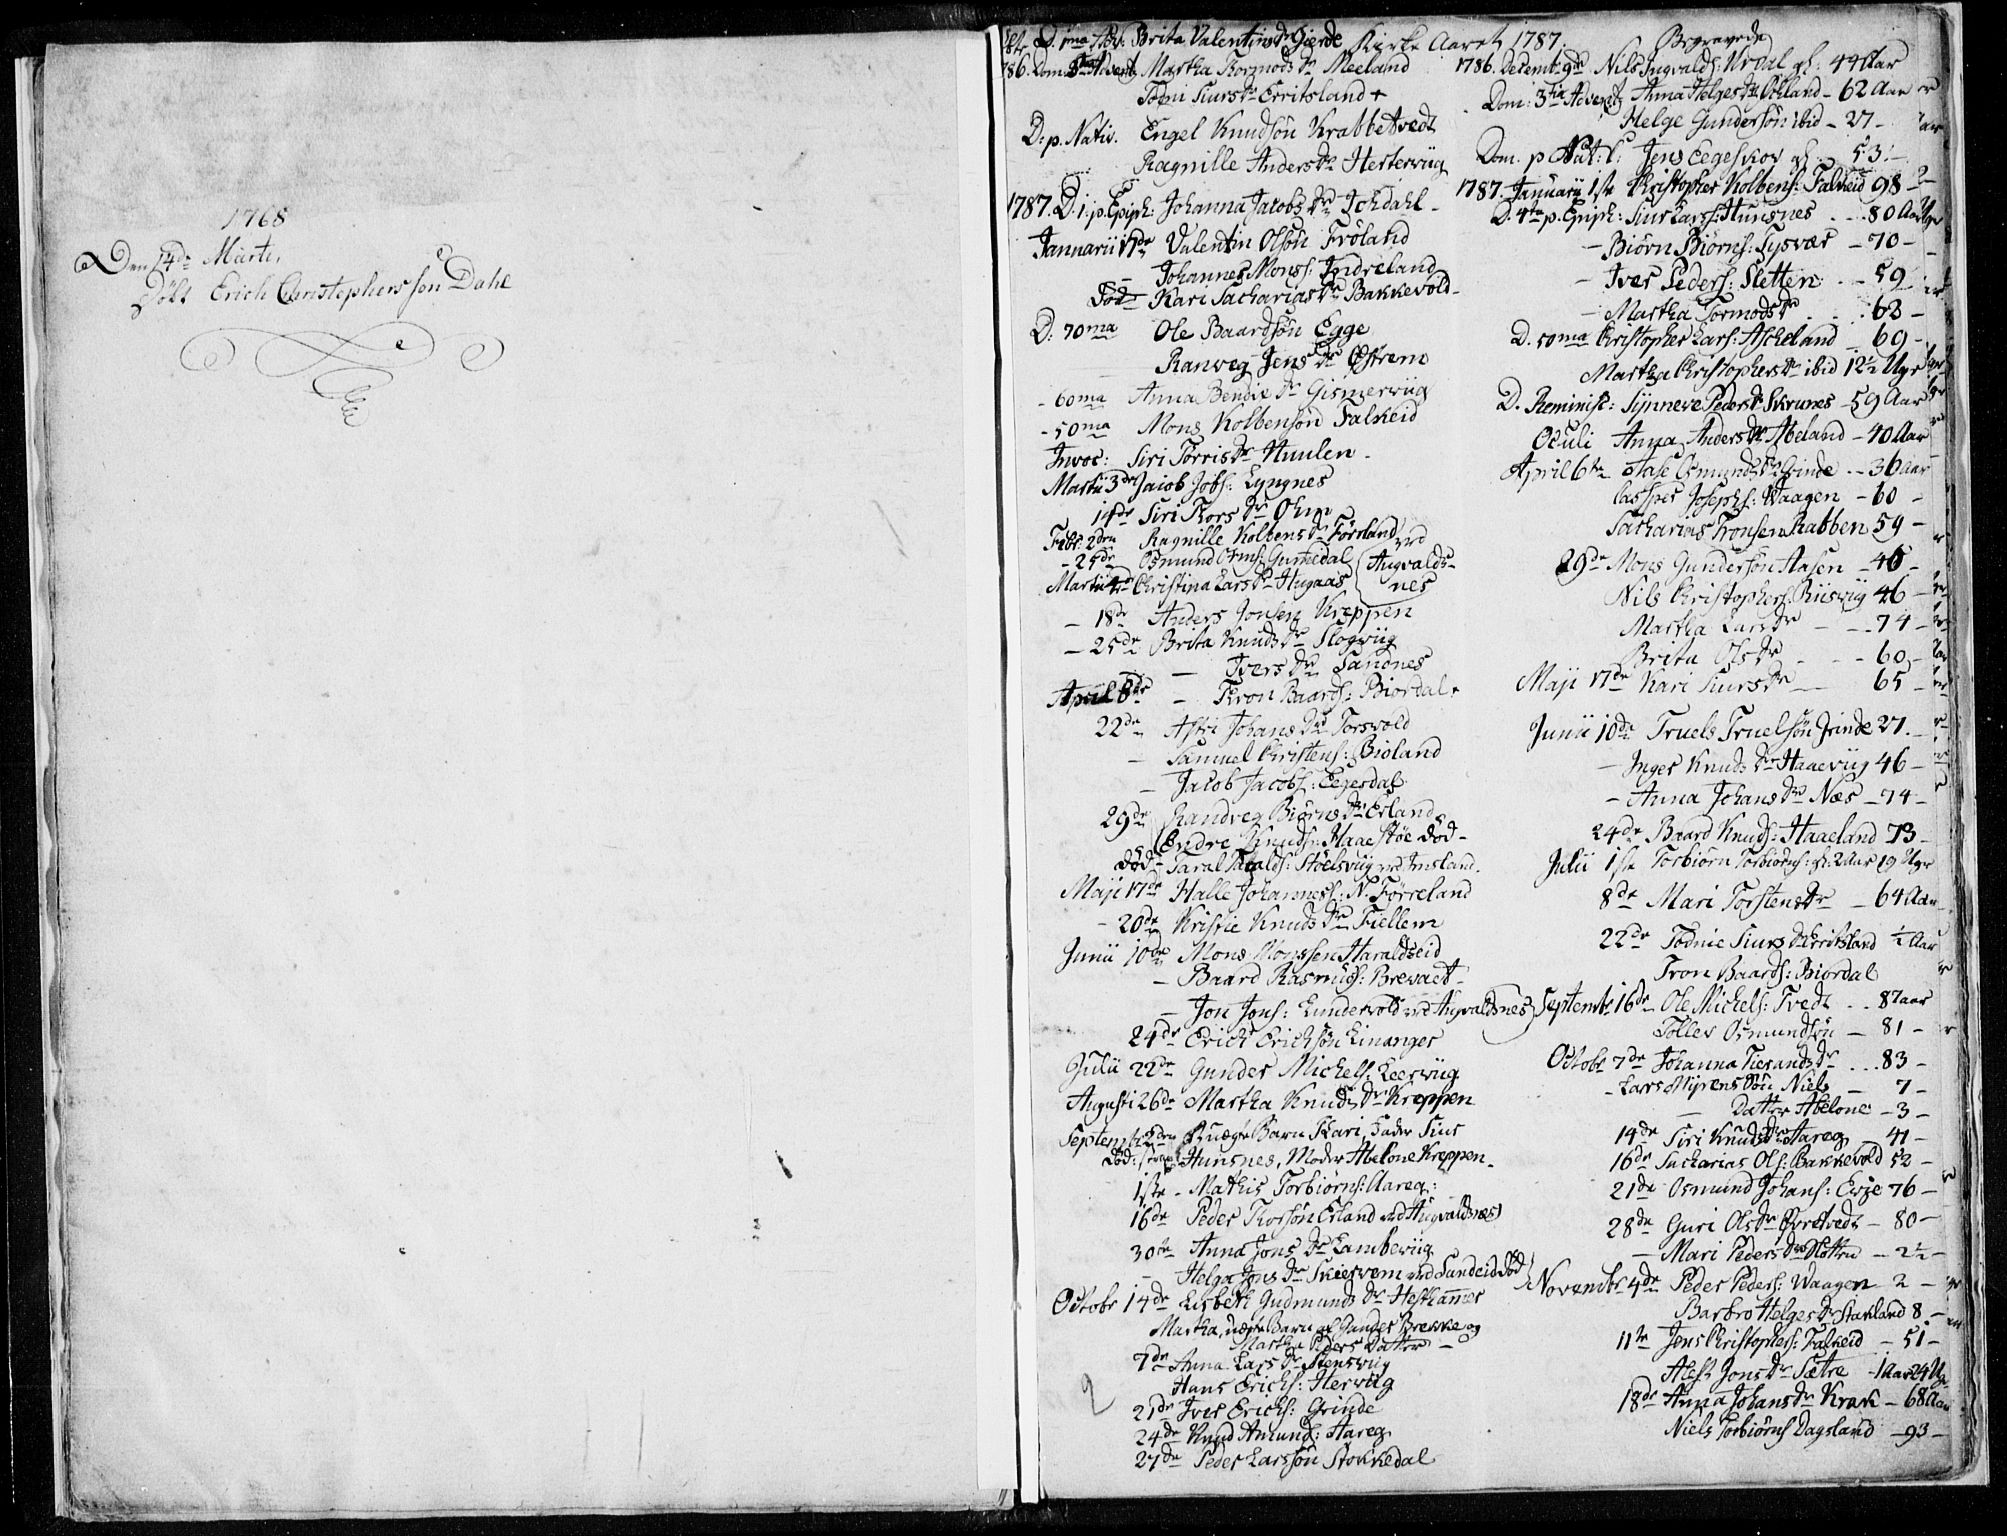 1768
Den 4de Marti,
Döbt Erich Christophersson Dahl
D. 1ma Adv. Brita Valentins Dr Gierde
Kirke Aaret 1787.
786. Dom: Advent Martha Tormods Dr Meeland
Todni Siurs Dr Erritsland +
D: p. Nativ. Engel Knudsön Krabbetvedt
Ragnille Anders Dr Herterviig
1787. D. 1. p. Epiph: Johanna Jacobs Dr Tohdahl
Januarii 17de Valentin Olsön Fröland
Johannes Mons: Indreland
Död Kari Sacharias Dr Bakkevold
D: 70ma Ole Baardsön Egge
Ranveg Jens Dr Østrem
- 60ma Anna Bendix Dr Gismerviig
- 50ma Mons Kolbensön Falkeid
Invoc: Siri Torris Dr Huulen
Martii 3de Jacob Jobs: Lyngnes
14de Siri Thors Dr Ohm
Febr: 2den Ragnille Kolbens Dr Förrland
- 25de Osmund Orms: Gumedal
ved Augvalds-
nes
Martii 4de Christina Lars Dr Hugaas
- 18de Anders Jonsen Kreppen
- 25de Brita Knuds Dr Slogviig
- Ivers Dr Sandnes
April 8de - Tron Baards: Biordal +
22de Astri Johans Dr Torsvold
- Samuel Christens: Bioland
- Jacob Jacobs: Eegesdal
29de Randveg Biörns Dr Erland
Endre Knuds: Haaestöe död
död - Taral Taralds: Stoelsviig ved Imsland.
Maji 17de Halle Johanness: N. Förreland
- 20de Kristie Knuds Dr Fiellem
Junii 10de Mons Monssen Haraldseid
- Baard Rasmus: Brevaet
- Jon Jons: Lundervold ved Augvaldsnes
24de Erich Erichsön Linanger
Julii 22de Gunder Michels: Leerviig
Augusti 26de Martha Knuds Dr Kreppen
Septemb: 2den Uægte Barn Kari, Fader Siur
död: Hunsnes, Moder Abelone Kreppen.
1ste - Mathis Torbiorns: Aareg:
16de Peder Thorsön Erland ved Augvaldsnes
30te Anna Jons Dr Lambeviig
- Helga Jons Dr Skiervem ved Sandeid död
Octobr 14de Lisbeth Gudmunds Dr Hesthammer
Martha, uægte Barn af Gunder Brekke og
Martha Peders Datter -
7de Anna Lars Dr Stensviig
Hans Erichs: Herviig
21de Iver Erichs: Grinde
24de Knud Amunds: Aareg
27de Peder Larssön Stokkedal
2
Begravede
1786. Decemb: 9de Nils Ingvalds: Urdal gl: 44 Aar
Dom: 3tia Advent Anna Helges Dr Økland - 62 Aar
Helge Gundersön ibid - 27 -
Dom. p Nat: C: Jens Eegeskov gl. 53 -
1787. Januarii 1ste Christopher Kolbens: Falkeid 98
D. 4te p. Epiph: Siur Lars: Hunsnes - 80 Aar
- Biörn Biörns: Tysvær - 70 -
- Iver Peders: Sletten - 59
- Martha Tormods Dr 62 -
D. 50ma Christopher Lars: Ascheland - 69 -
Martha Christophers Dr ibid 12½ Uger
D. Reminisc: Synneve Peders Dr Skrunes - 59 Aar
Oculi Anna Anders Dr Abeland - 40 Aar
April 6te Aase Osmunds Dr Grinde - 36 Aar
Casper Josephs: Waagen - 60 -
Sacharias Tronsen Rabben 59 -
29de Mons Gundersön Aasen - 46 -
Nils Christophers: Riisviig 46 -
Martha Lars Dr - 74 -
Brita Ols Dr - 60 -
Maji 17de Kari Siurs Dr - 65 -
Junii 10de Truels Truelsön Grinde 27. -
- Inger Knuds Dr Haaeviig 46 -
- Anna Johans Dr Næs - 74 -
24de Baard Knuds: Haaeland 73 -
Julii 1ste Torbiörn Torbiörns: gl: 2 Aar 19 Uger
8de Mari Torstens Dr - 64 Aar
22de Todnie Siurs Dr Erritsland ½ Aar
Tron Baards: Biordal
Septembr 16de Ole Michels: Tvedt .. 87 aar
Tollev Osmundsön - 81 -
Octobr 7de Johanna Tierands Dr ... 83 -
- Lars Myrens Sön Niels - 7 -
- Datter Abelone - 3 -
14de Siri Knuds Dr Aareg 41 -
16de Sacharias Ols: Bakkevold 52 -
21de Osmund Johans: Erge 76 -
28de Guri Ols Dr Øvretvedt - 80 -
- Mari Peders Dr Sletten - 2½ -
Novembr 4de Peder Peders: Waagen 2 -
Barbro Helges Dr Stakland 8. -
11te Jens Christophers: Falkeid - 51 -
Alest Jons Dr Sætre - 1 Aar 24 Ug.
18de Anna Johans Dr Krak - 68 Aar
Niels Torbiörns Dagsland - 93 -